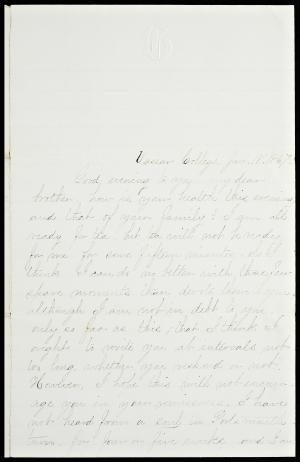 Vassar College, Jan.
Good evening to you my dear
brother, how is your health this evening
and that of your family? I am all
ready for tea but tea will not be ready
for me for some fifteen minutes, so I
think I can do no better with these few
spare moments than devote them to you
although I am not in debt to you
only so far as this, that I think I
ought to write you at intervals not
too long whether you respond or not.
However, I hope this will not encour-
age you in your remissness. I have
not heard from a soul in
town for four or five weeks and I am